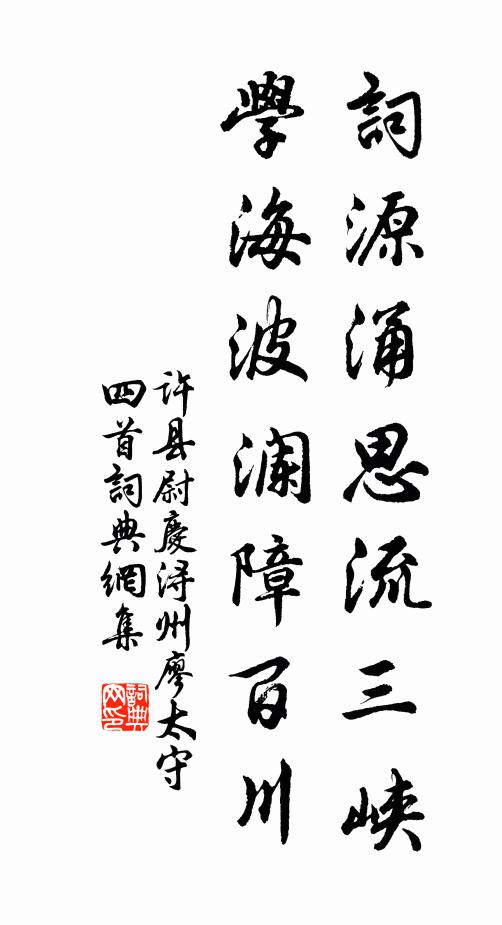 詞源涌思流三峽
學海波澜障百川
许县尉慶浔州廖太守
四首詞典網集
詞典
网印